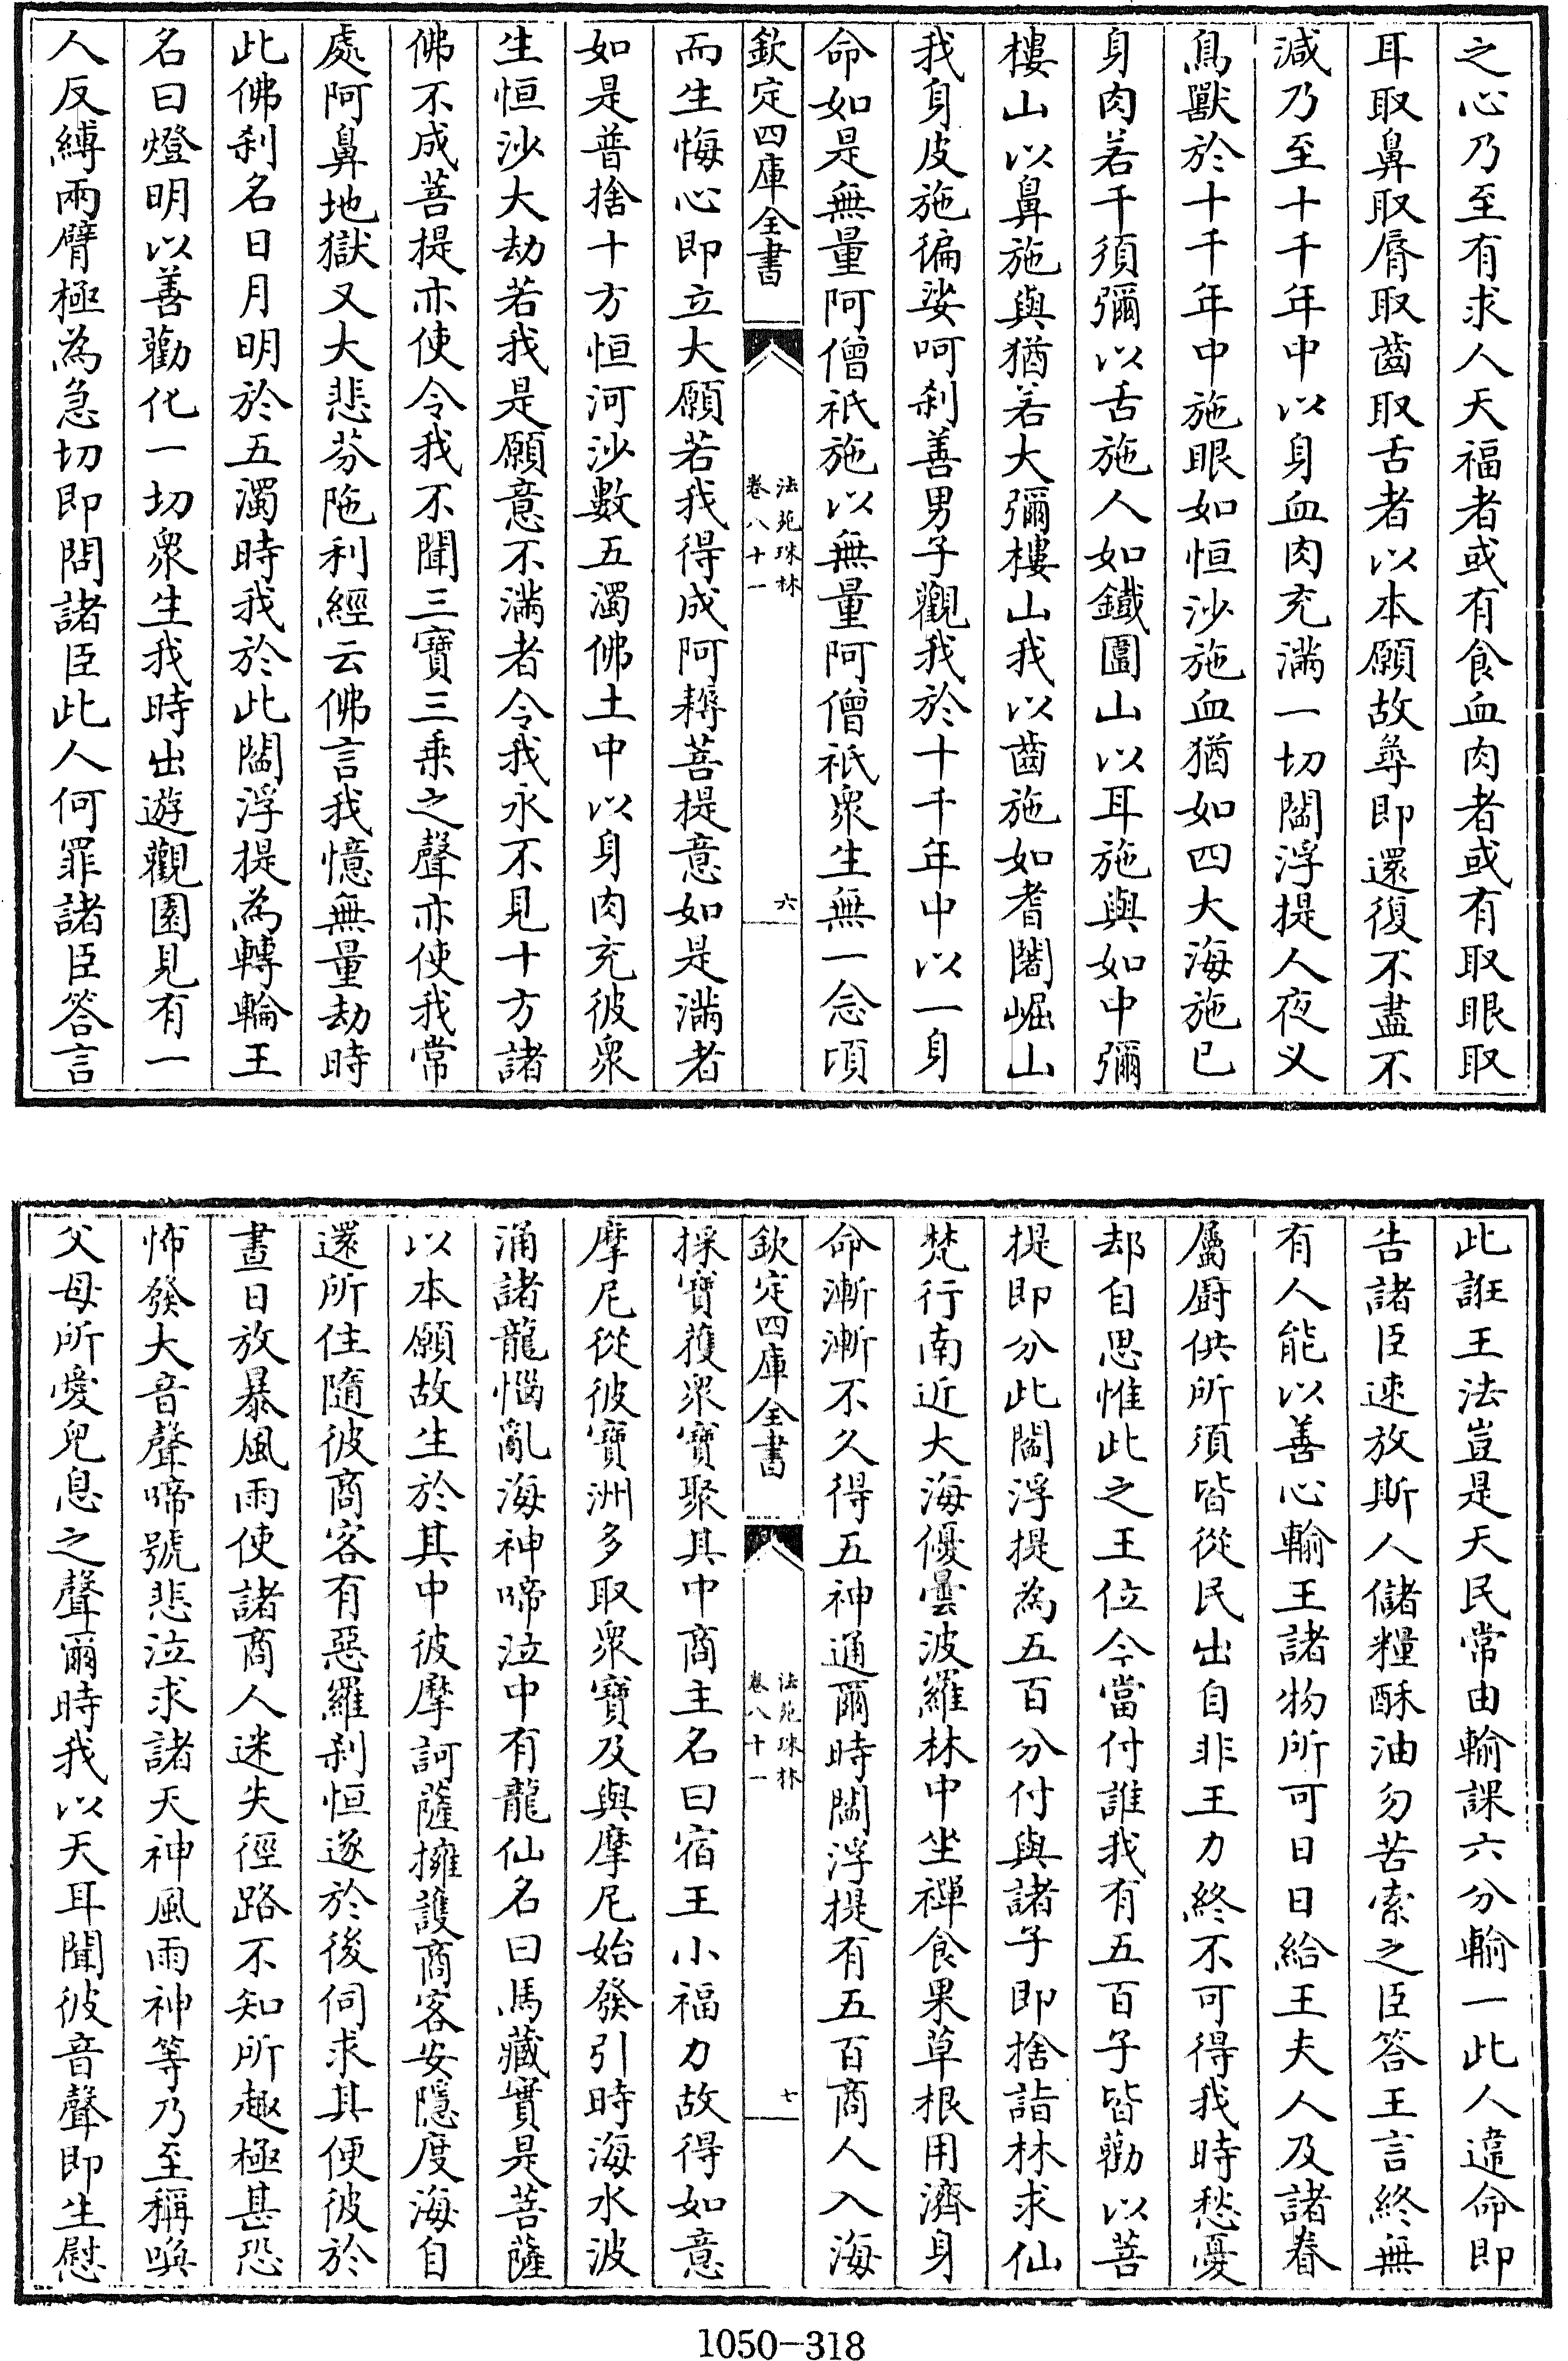 之心乃至有求人天福者或有食血肉者或有取眼取
耳取鼻取脣取齒取舌者以本願故尋即還復不盡不
減乃至十千年中以身血肉充滿一切閻浮提人夜义
鳥獸於十千年中施眼如恒沙施血猶如四大海施已
身肉若千須彌以舌施人如鐵圍山以耳施與如中彌
樓山以鼻施與猶若大彌樓山我以齒施如耆闍崛山
我身皮施徧娑呵刹善男子觀我於十千年中以一身
命如是無量阿僧祇施以無量阿僧祇衆生無一念頃
欽定四庫全書
法苑珠林
卷八十一
六
而生悔心即立大願若我得成阿耨菩提意如是滿者
如是普捨十方恒河沙數五濁佛土中以身肉充彼衆
生恒沙大劫若我是願意不滿者令我永不見十方諸
佛不成菩提亦使令我不聞三寶三乗之聲亦使我常
處阿鼻地獄又大悲芬陁利經云佛言我憶無量劫時
此佛刹名日月明於五濁時我於此閻浮提為轉輪王
名曰燈明以善勸化一切衆生我時出遊觀園見有一
人反縛兩臂極為急切即問諸臣此人何罪諸臣答言
此誑王法豈是天民常由輸課六分輸一此人違命即
告諸臣速放斯人儲糧酥油勿苦索之臣答王言終無
有人能以善心輸王諸物所可日日給王夫人及諸眷
屬厨供所須皆從民出自非王力終不可得我時愁憂
却自思惟此之王位今當付誰我有五百子皆勸以菩
提即分此閻浮提為五百分付與諸子即捨詣林求仙
梵行南近大海優曇波羅林中坐禪食果草根用濟身
命漸漸不久得五神通爾時閻浮提有五百商人入海
欽定四庫全書
法苑珠林
卷八十一
七
採寶獲衆寶聚其中商主名曰宿王小福力故得如意
摩尼從彼寶洲多取衆寶及與摩尼始發引時海水波
涌諸龍惱亂海神啼泣中有龍仙名曰馬藏實是菩薩
以本願故生於其中彼摩訶薩擁護商客安隱度海自
還所住隨彼商客有惡羅刹恒逐於後伺求其便彼於
晝日放暴風雨使諸商人迷失徑路不知所趣極甚恐
怖發大音聲啼號悲泣求諸天神風雨神等乃至稱喚
父母所愛兒息之聲爾時我以天耳聞彼音聲即生慰
1050-318